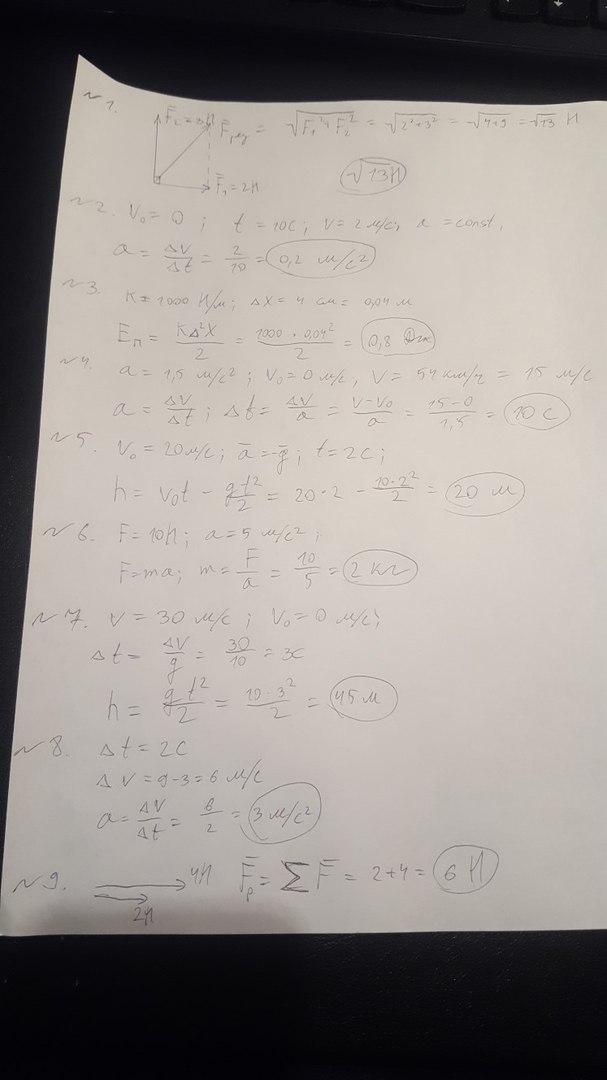 №1. F̄₂=3Н F̄рез = √(F₁²+F₂²) = √(2²+3²) = √(4+9) = √13 Н
F̄₁=2Н √13 Н
№2. V₀=0; t=10с; V=2 м/с; a=const,
a = ΔV/Δt = 2/10 = 0,2 м/с²
№3.
K=1000 Н/м; Δx=4 см=0,04 м
Eп = KΔ²X/2 = 1000·0,04²/2 = 0,8 Дж
№4. a=1,5 м/с²; V₀=0 м/с, V=54 км/ч=15 м/с
a = ΔV/Δt; Δt = ΔV/a = V-V₀/a = 15-0/1,5 = 10 с
№5. V₀=20 м/с; ā=-ḡ; t=2с;
h = V₀t - gt²/2 = 20·2 - 10·2²/2 = 20 м
№6. F=10Н; a=5 м/с²;
F=ma; m = F/a = 10/5 = 2 кг
№7. V=30 м/с; V₀=0 м/с;
Δt = ΔV/g = 30/10 = 3с
h = gt²/2 = 10·3²/2 = 45 м
№8. Δt=2с
ΔV=9-3=6 м/с
a = ΔV/Δt = 6/2 = 3 м/с²
№9. 4Н F̄р = ΣF̄ = 2+4 = 6 Н
2Н